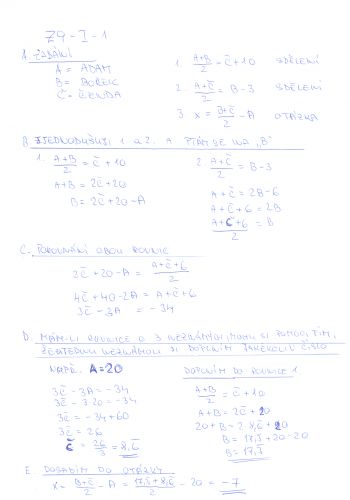 Z9-I-1
A. ZADÁNÍ
A = ADAM
B = BOREK
Č = ČENDA
1. (A+B)/2 = Č+10 SDĚLENÍ
2. (A+Č)/2 = B-3 SDĚLENÍ
3. x = (B+Č)/2 - A OTÁZKA
B. ZJEDNODUŠUSI 1 a 2. A PTÁM SE NA „B"
1. (A+B)/2 = Č+10
A+B = 2Č+20
B = 2Č+20-A
2. (A+Č)/2 = B-3
A+Č = 2B-6
A+Č+6 = 2B
(A+Č+6)/2 = B
C. POROVNÁNÍ OBOU ROVNIC
2Č+20-A = (A+Č+6)/2
4Č+40-2A = A+Č+6
3Č-3A = -34
D. MÁM-LI ROVNICE O 3 NEZNÁMÝCH, MOHU SI POMOCÍ TÍM,
ŽE JEDNU NEZNÁMOU SI DOPLNÍM JAKÉKOLIV ČÍSLO
NAPŘ. A=20
3Č-3A = -34
3Č-3·20 = -34
3Č = -34+60
3Č = 26
Č = 26/3 = 8,6̄
DOPLNÍM DO ROVNICE 1
(A+B)/2 = Č+10
A+B = 2Č+20
20+B = 2·8,6̄+20
B = 17,3̄+20-20
B = 17,3̄
E. DOSADÍM DO OTÁZKY
x = (B+Č)/2 - A = (17,3̄+8,6̄)/2 - 20 = -7